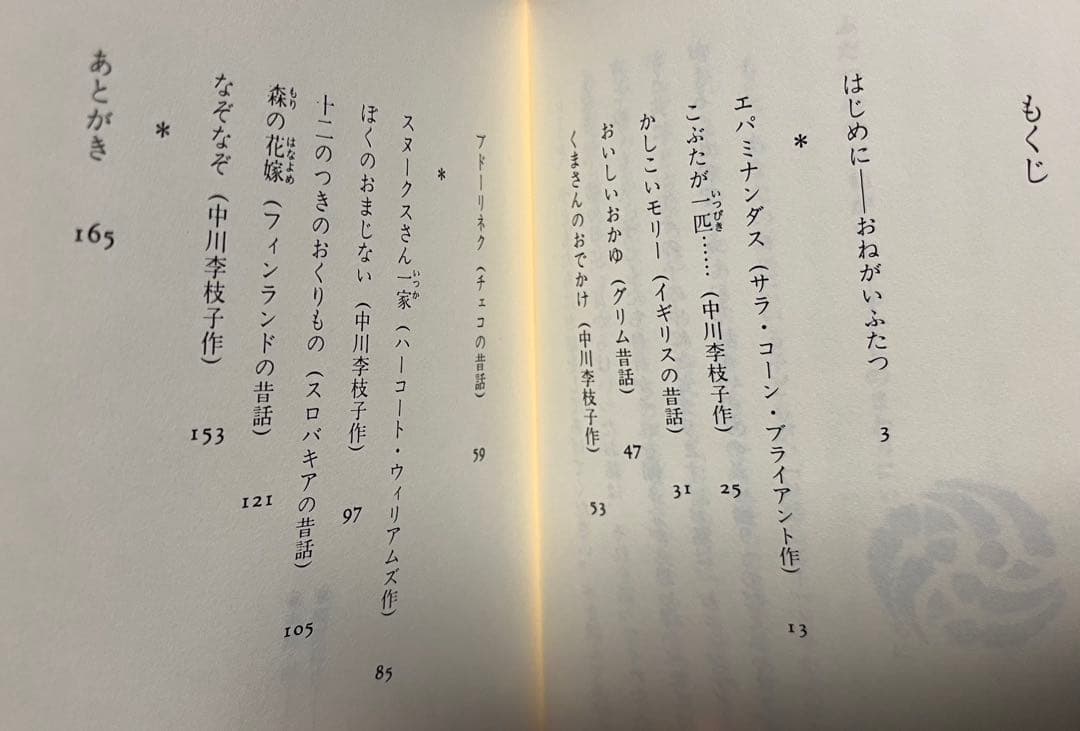 もくじ
はじめに――おねがいふたつ 3
*
エパミナンダス（サラ・コーン・ブライアント作） 13
こぶたが一匹……（中川李枝子作） 25
かしこいモリー（イギリスの昔話） 31
おいしいおかゆ（グリム昔話） 47
くまさんのおでかけ（中川李枝子作） 53
ブドーリネク（チェコの昔話） 59
*
スヌークスさん一家（ハーコート・ウィリアムズ作） 85
ぼくのおまじない（中川李枝子作） 97
十二のつきのおくりもの（スロバキアの昔話） 105
森の花嫁（フィンランドの昔話） 121
なぞなぞ（中川李枝子作） 153
*
あとがき 165